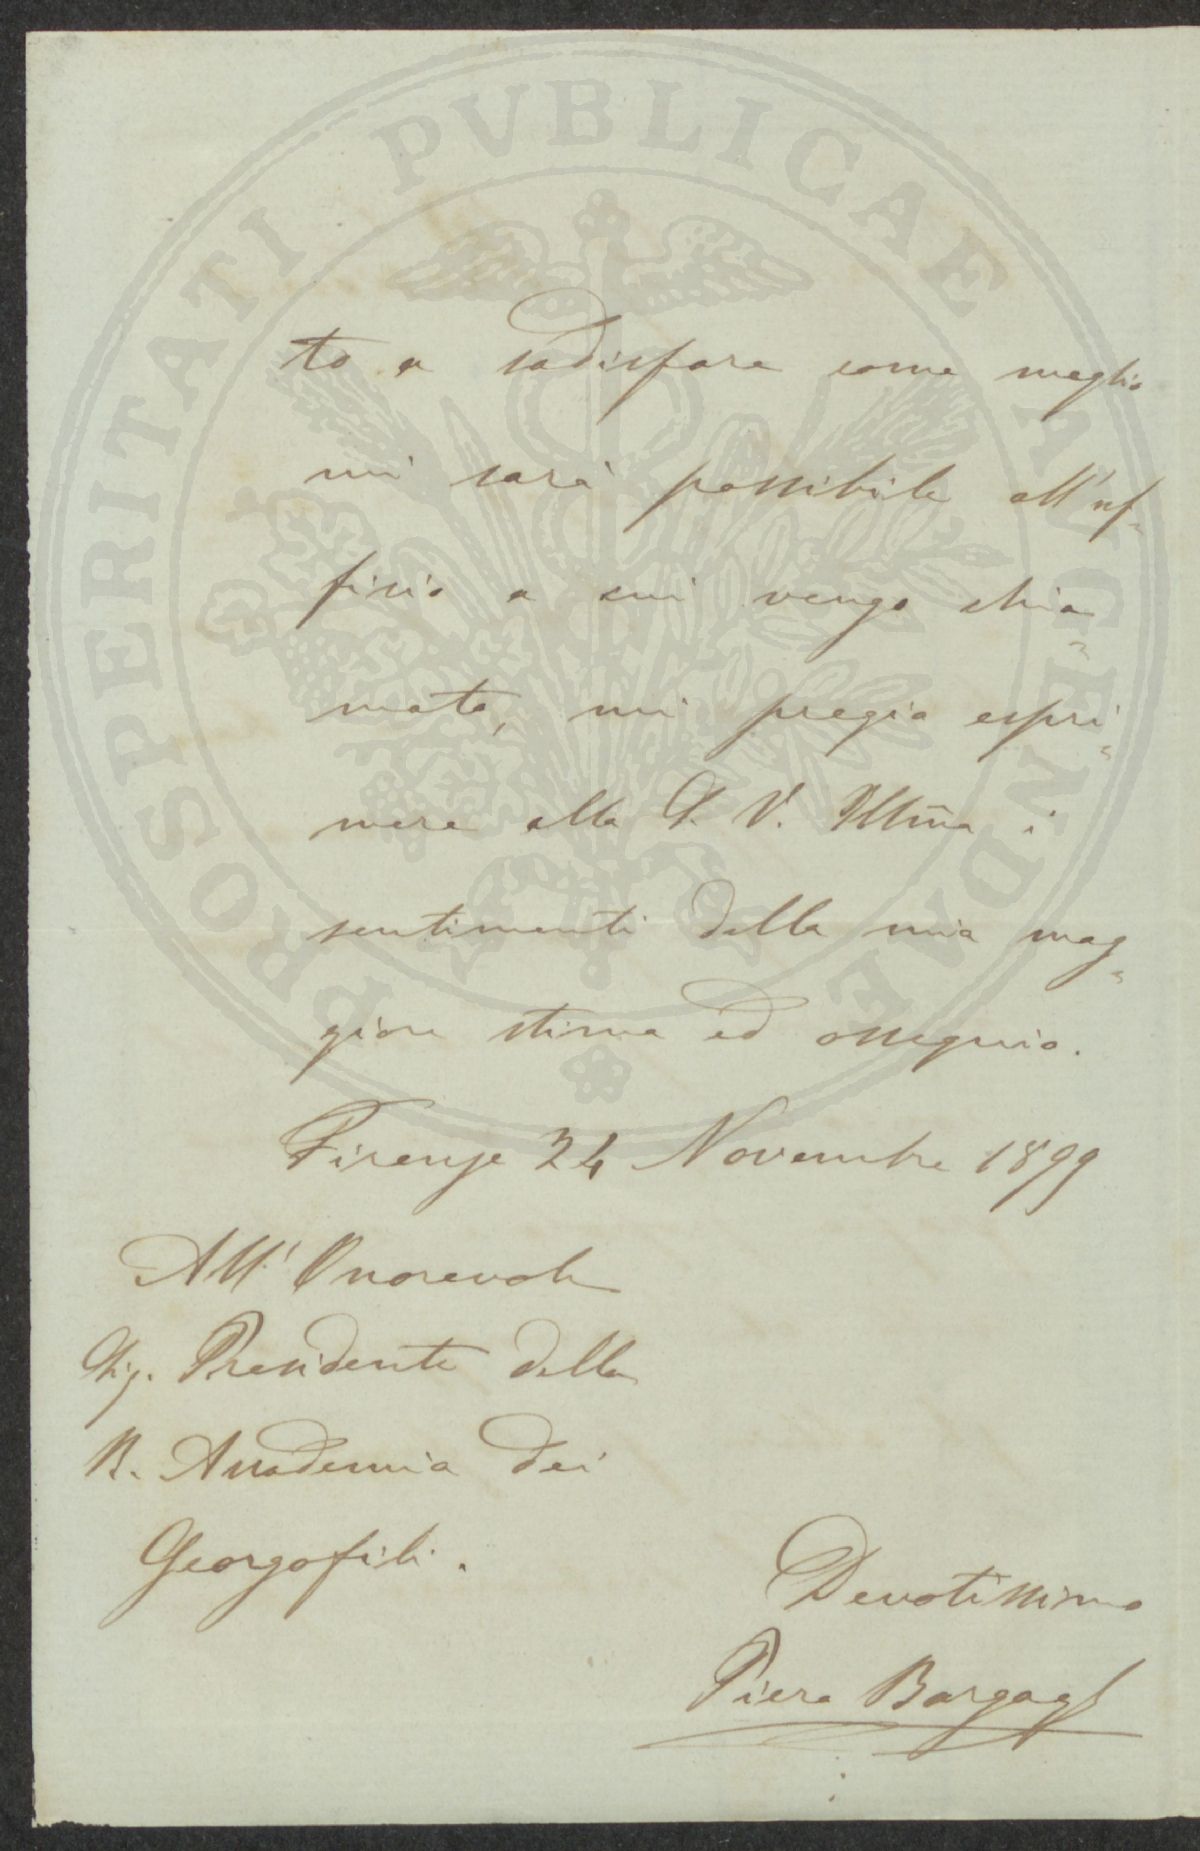 PROSPERITATI PVBLICAE AVGENDAE
to a sodisfare come meglio
mi sarà possibile all'uf-
ficio a cui vengo chia-
mato, mi pregio espri-
mere alla S. V. Illm̃a i
sentimenti della mia mag-
giore stima ed ossequio.
Firenze 24 Novembre 1899
All' Onorevole
Sig. Presidente della
R. Accademia dei
Georgofili.
Devotissimo
Piero Bargagli